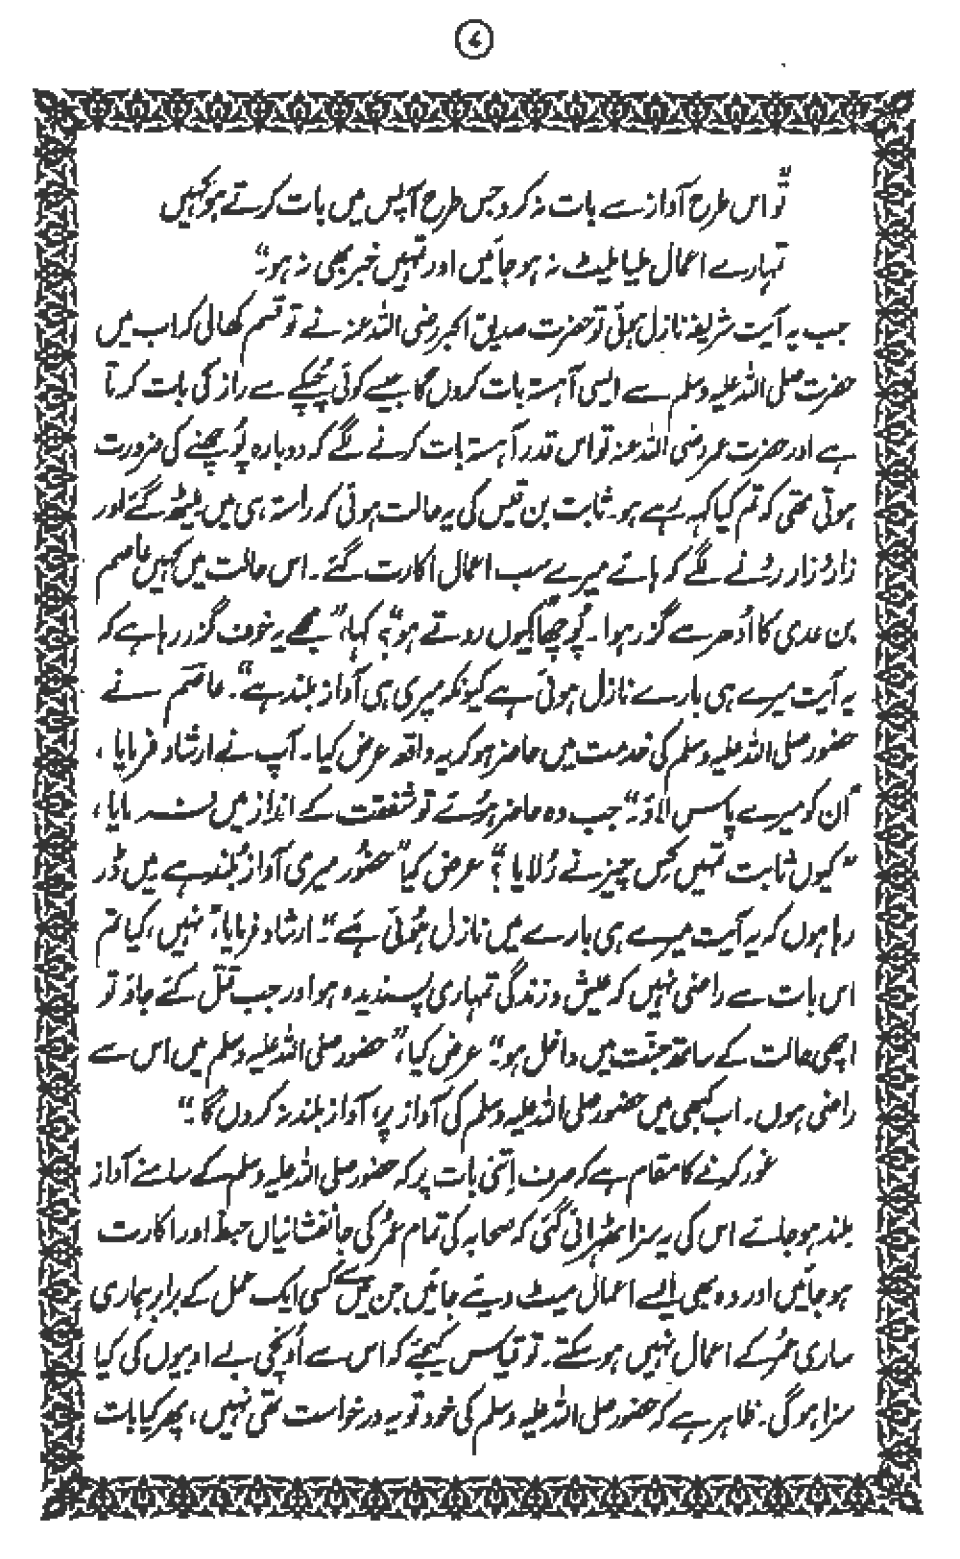 ۷
تو اس طرح آواز سے بات نہ کرو جس طرح آپس میں بات کرتے ہو کہیں
تمہارے اعمال ملیا میٹ نہ ہو جائیں اور تمہیں خبر بھی نہ ہو"
جب یہ آیت شریفہ نازل ہوئی تو حضرت صدیق اکبر رضی اللہ عنہ نے تو قسم کھالی کہ اب میں
حضرت صلی اللہ علیہ وسلم سے ایسی آہستہ بات کروں گا جیسے کوئی چپکے سے راز کی بات کرتا
ہے اور حضرت عمر رضی اللہ عنہ تو اس قدر آہستہ بات کرنے لگے کہ دوبارہ پوچھنے کی ضرورت
ہوتی تھی کہ تم کیا کہہ رہے ہو۔ ثابت بن قیس کی یہ حالت ہوئی کہ راستہ ہی میں بیٹھ گئے اور
زار زار رونے لگے کہ ہائے میرے سب اعمال اکارت گئے۔ اس حالت میں کہیں عاصم
بن عدی کا اُدھر سے گزر ہوا۔ پُوچھا "کیوں روتے ہو"؟ کہا، "مجھے یہ خوف گزر رہا ہے کہ
یہ آیت میرے ہی بارے نازل ہوئی ہے کیونکہ میری ہی آواز بلند ہے"۔ عاصم نے
حضور صلی اللہ علیہ وسلم کی خدمت میں حاضر ہو کر یہ واقعہ عرض کیا۔ آپ نے ارشاد فرمایا،
"اُن کو میرے پاس لاؤ"۔ جب وہ حاضر ہوئے تو شفقت کے انداز میں فرمایا،
"کیوں ثابت تمہیں کِس چیز نے رُلایا"؟ عرض کیا "حضُور میری آواز بُلند ہے میں ڈر
رہا ہوں کہ یہ آیت میرے ہی بارے میں نازل ہُوئی ہے"۔ ارشاد فرمایا، "نہیں، کیا تم
اس بات سے راضی نہیں کہ عیش و زندگی تمہاری پسندیدہ ہو اور جب قتل کئے جاؤ تو
اچھی حالت کے ساتھ جنّت میں داخل ہو"۔ عرض کیا، "حضور صلی اللہ علیہ وسلم میں اس سے
راضی ہوں۔ اب کبھی میں حضور صلی اللہ علیہ وسلم کی آواز پر، آواز بلند نہ کروں گا۔"
غور کرنے کا مقام ہے کہ صرف اِتنی بات پر کہ حضور صلی اللہ علیہ وسلم کے سامنے آواز
بلند ہو جائے اس کی یہ سزا ٹھہرائی گئی کہ صحابہ کی تمام عُمر کی جانفشانیاں حبط اور اکارت
ہو جائیں اور وہ بھی ایسے اعمال میٹ دیئے جائیں جن میں سے کسی ایک عمل کے برابر ہماری
ساری عُمر کے اعمال نہیں ہو سکتے۔ تو قیاس کیجئے کہ اس سے اُونچی بے ادبیوں کی کیا
سزا ہو گی۔ ظاہر ہے کہ حضور صلی اللہ علیہ وسلم کی خود تو یہ درخواست تھی نہیں، پھر کیا بات